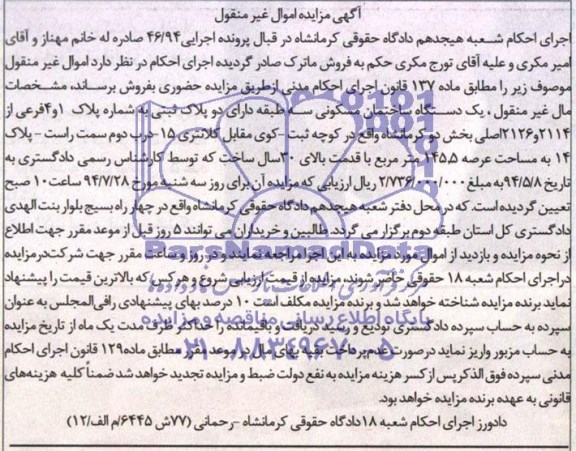 آگهی مزایده اموال غیر منقول
اجرای احکام شعبه هیجدهم دادگاه حقوقی کرمانشاه در قبال پرونده اجرایی ۴۶/۹۴ صادره له خانم مهناز و آقای
امیر مکری و علیه آقای تورج مکری حکم به فروش ماترک صادر گردیده اجرای احکام در نظر دارد اموال غیر منقول
موصوف زیر را مطابق ماده ۱۳۷ قانون اجرای احکام مدنی ازطریق مزایده حضوری بفروش برساند، مشخصات
مال غیر منقول ، یک دستگاه ساختمان مسکونی سه طبقه دارای دو پلاک ثبتی به شماره پلاک ۱و۴فرعی از
۲۱۱۴و۲۱۲۶اصلی بخش دو کرمانشاه واقع در کوچه ثبت -کوی مقابل کلانتری ۱۵-درب دوم سمت راست - پلاک
۱۴ به مساحت عرصه ۱۴۵.۵ متر مربع با قدمت بالای ۳۰سال ساخت که توسط کارشناس رسمی دادگستری به
تاریخ ۹۴/۵/۸به مبلغ ۲/۷۳۶/۰۰۰/۰۰۰ ریال ارزیابی که مزایده آن برای روز سه شنبه مورخ ۹۴/۷/۲۸ ساعت۱۰ صبح
تعیین گردیده است. که در محل دفتر شعبه هیجدهم دادگاه حقوقی کرمانشاه واقع در چهار راه بسیج بلوار بنت الهدی
دادگستری کل استان طبقه دوم برگزار می گردد. طالبین و خریداران می توانند ۵ روز قبل از موعد مقرر جهت اطلاع
از نحوه مزایده و بازدید از اموال مورد مزایده به این اجرا مراجعه نمایند و در روز و ساعت مقرر جهت شرکت‌درمزایده
دراجرای احکام شعبه ۱۸ حقوقی حاضر شوند. مزایده از قیمت ارزیابی شروع و هر کس که بالاترین قیمت را پیشنهاد
نماید برنده مزایده شناخته خواهد شد و برنده مزایده مکلف است ۱۰ درصد بهای پیشنهادی رافی‌المجلس به عنوان
سپرده به حساب سپرده دادگستری تودیع و رسید دریافت و باقیمانده را حداکثر ظرف مدت یک ماه از تاریخ مزایده
به حساب مزبور واریز نماید درصورت عدم پرداخت بقیه بهای مال در موعد مقرر مطابق ماده۱۲۹ قانون اجرای احکام
مدنی سپرده فوق الذکر پس از کسر هزینه مزایده به نفع دولت ضبط و مزایده تجدید خواهد شد ضمناً کلیه هزینه‌های
قانونی به عهده برنده مزایده خواهد بود.
دادورز اجرای احکام شعبه ۱۸دادگاه حقوقی کرمانشاه -رحمانی (۷۷ش ۶۴۴۵/م الف/۱۲)
ParsNamadData
پایگاه اطلاع رسانی مناقصه و مزایده
۰۲۱-۸۸۳۴۹۶۷۰-۵